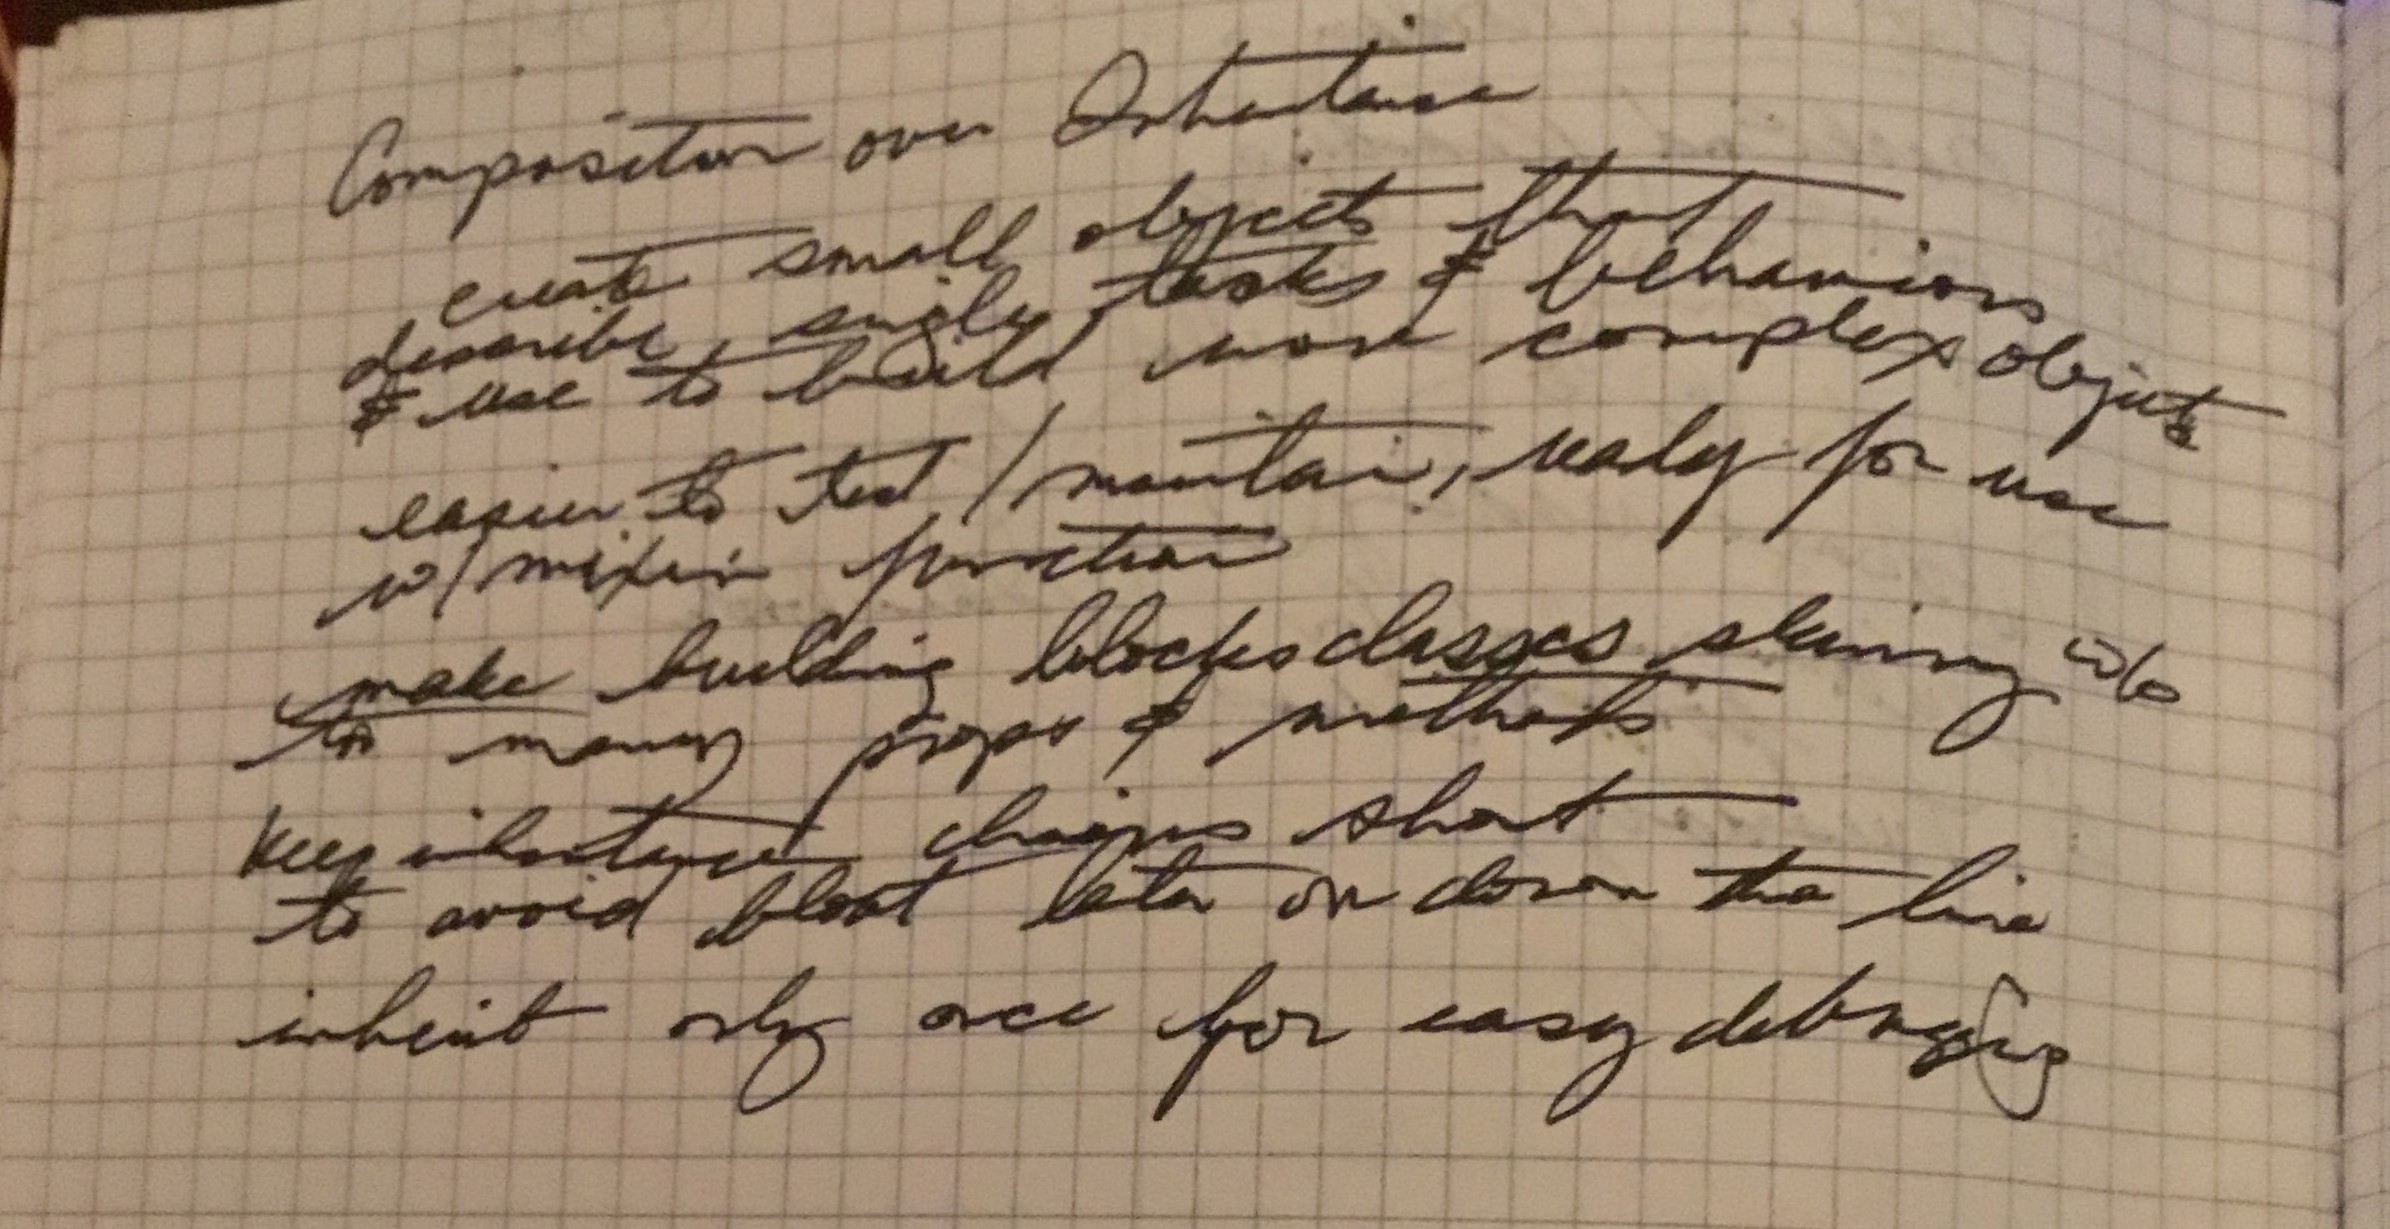 Composition over Inheritance
create small objects that
describe single tasks & behaviors
& use to build more complex objects
easier to test / maintain, ready for use
w/ mixin function
make building blocks classes skinny w/o
to many props & methods
keep inheritance chains short
to avoid bloat later on down the line
inherit only once for easy debugging